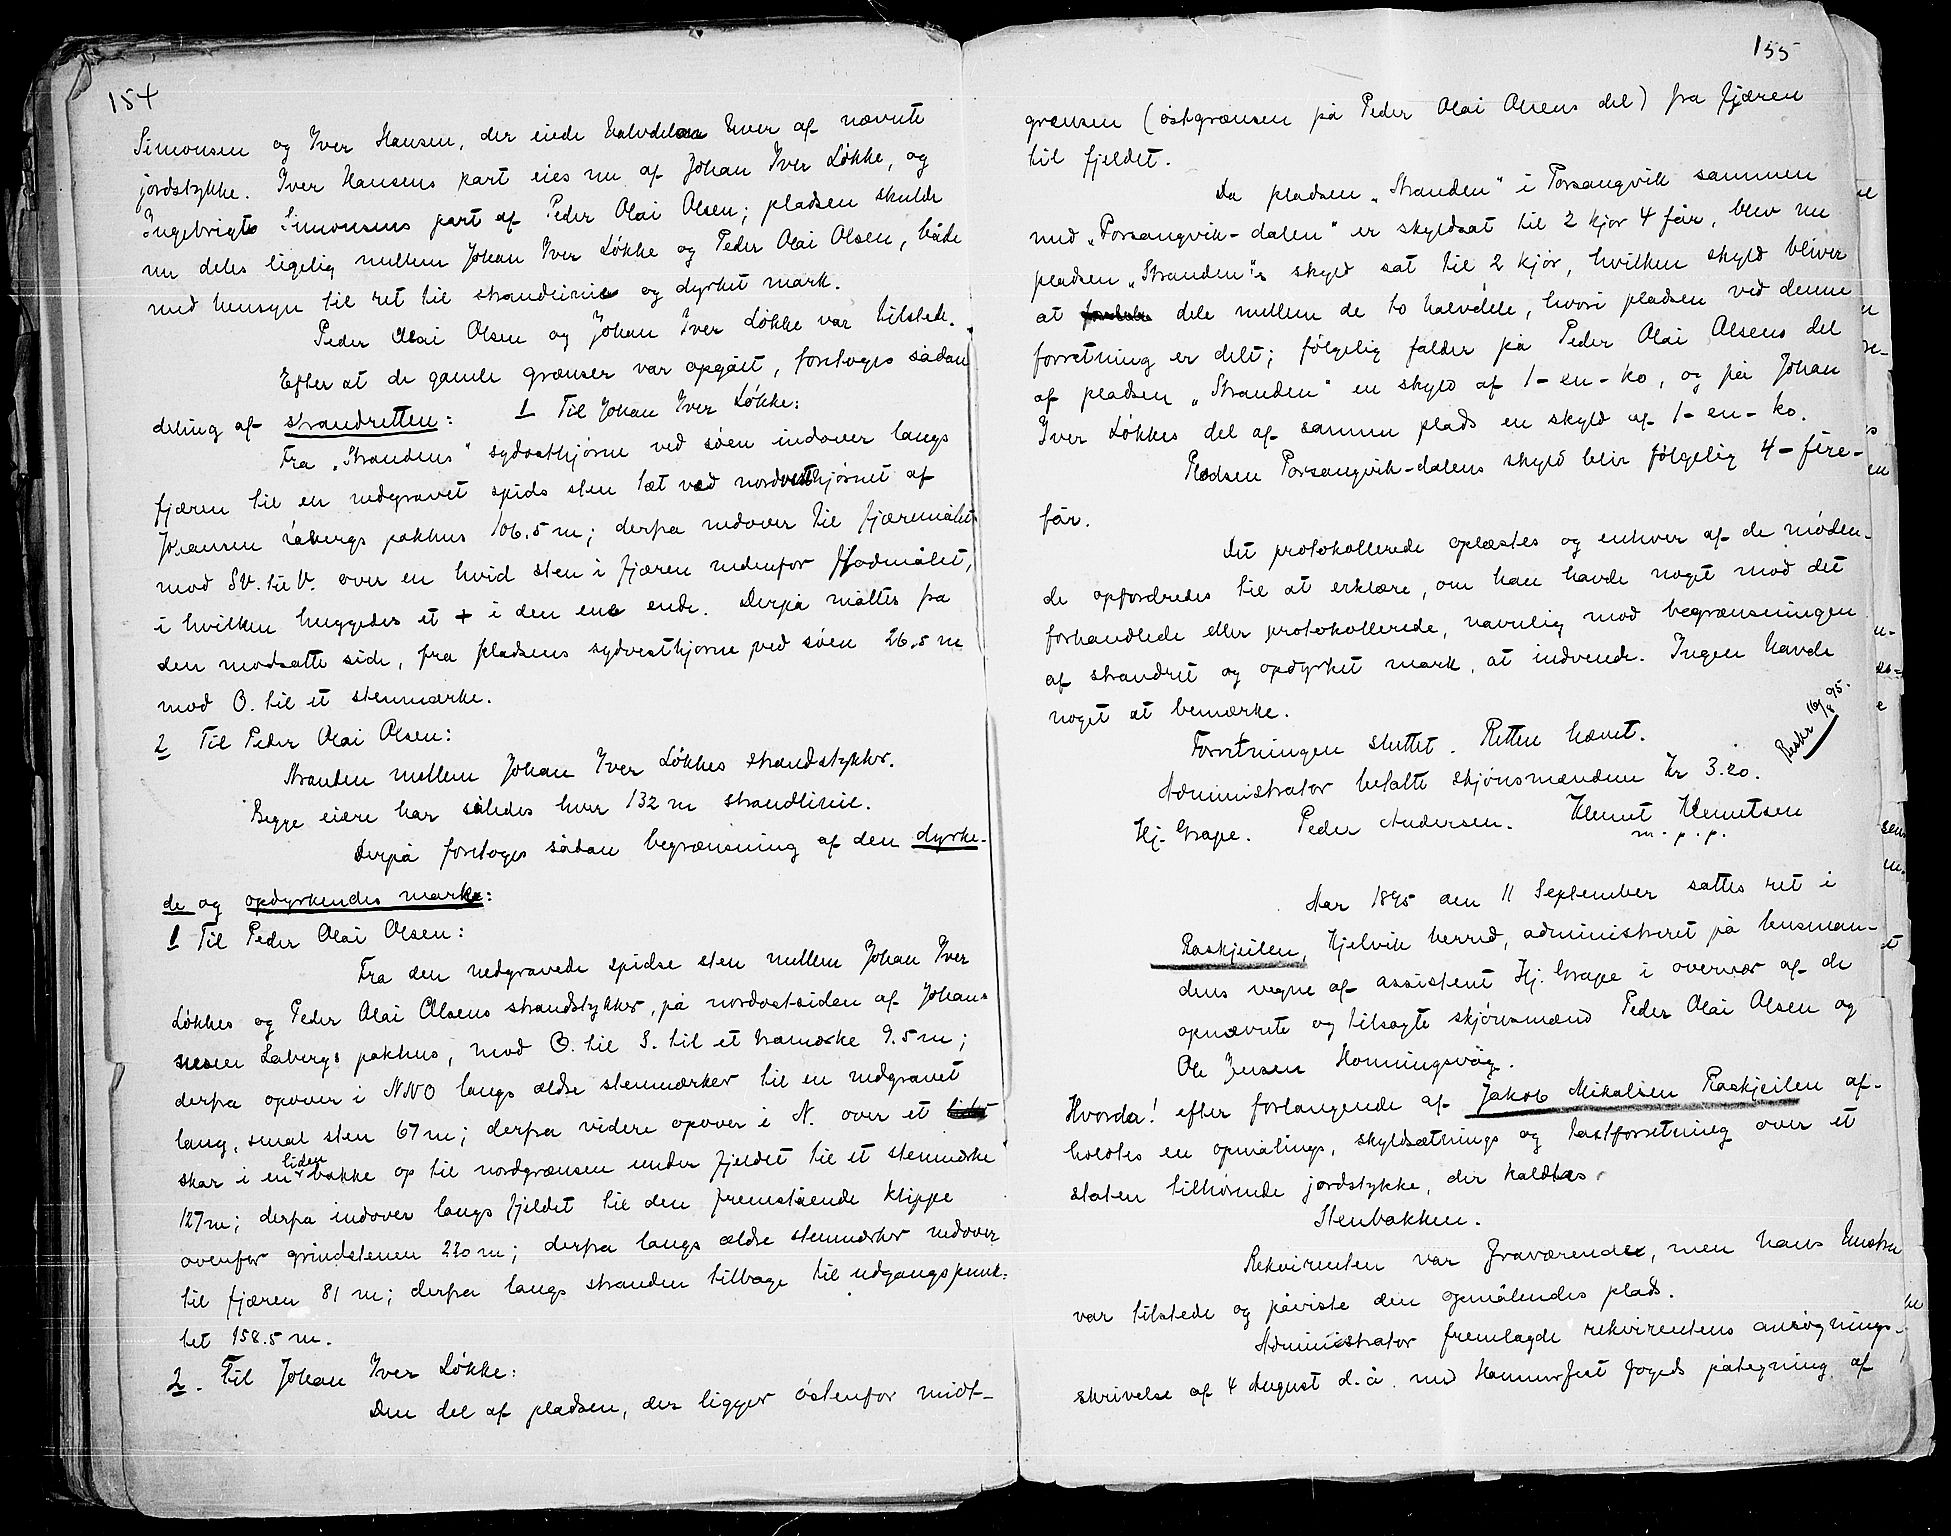 154
Simonsen og Iver Hansen, der eiede halvdelen hver af nævnte
jordstykke. Iver Hansens part eies nu af Johan Iver Løkke, og
Ingebrigts Simonsens part af Peder Olai Olsen; pladsen skulde
nu deles ligelig mellem Johan Iver Løkke og Peder Olai Olsen, både
med hensyn til ret til strandlinie og dyrket mark.
Peder Olai Olsen og Johan Iver Løkke var tilstede.
Efter at de gamle grænser var opgået, foretoges sådan
deling af strandretten: 1 Til Johan Iver Løkke:
Fra „Strandens“ sydvesthjørne ved søen indover langs
fjæren til en nedgravet spids sten tæt ved nordvesthjørnet af
Johansen Labergs pakhus 106.5 m; derfra nedover til fjæremålet
mod SV. til V. over en hvid sten i fjæren nedenfor flodmålet,
i hvilken huggedes et + i den ene ende. Derpå måltes fra
den modsatte side, fra pladsens sydvesthjørne ved søen 26.5 m
mod O. til et stenmærke.
2 Til Peder Olai Olsen:
Stranden mellem Johan Iver Løkkes strandstykker.
Begge eiere har således hver 132 m strandlinie.
Derpå foretoges sådan begrænsning af den dyrke-
de og opdyrkendes mark:
1 Til Peder Olai Olsen:
Fra den nedgravede spidse sten mellem Johan Iver
Løkkes og Peder Olai Olsens strandstykker, på nordostsiden af Johan-
nesen Labergs pakhus, mod O. til S. til et træmærke 9.5 m;
derfra opover i NNO langs ældre stenmærker til en nedgravet
lang, smal sten 67 m; derfra videre opover i N. over et
skar i en liden bakke op til nordgrænsen under fjeldet til et stenmærke
127 m; derfra indover langs fjeldet til den fremstående klippe
ovenfor grindstenen 220 m; derfra langs ældre stenmærker nedover
til fjæren 81 m; derfra langs stranden tilbage til udgangspunk-
tet 158.5 m.
2. Til Johan Iver Løkke:
Den del af pladsen, der ligger østenfor midt-
155
grænsen (østgrænsen på Peder Olai Olsens del) fra fjæren
til fjeldet.
Da pladsen „Stranden“ i Porsangvik sammen
med „Porsangvik-dalen“ er skyldsat til 2 kjør 4 får, blev nu
pladsen „Stranden“s skyld sat til 2 kjør, hvilken skyld bliver
at dele mellem de to halvdele, hvori pladsen ved denne
forretning er delt; følgelig falder på Peder Olai Olsens del
af pladsen „Stranden“ en skyld af 1-en-ko, og på Johan
Iver Løkkes del af samme plads en skyld af 1-en-ko.
Pladsen Porsangvik-dalens skyld blir følgelig 4-fire-
får.
Det protokollerede oplæstes og enhver af de møden-
de opfordredes til at erklære, om han havde noget mod det
forhandlede eller protokollerede, navnlig mod begrænsningen
af strandret og opdyrket mark, at indvende. Ingen havde
noget at bemærke.
Forretningen sluttet. Retten hævet.
Administrator betalte skjønsmændene Kr 3.20.
16/8 95.
Hj. Grape. Peder Andersen. Klemet Klemetsen
m. p. p.
Aar 1895 den 11 September sattes ret i
Raskjeilen, Kjelvik herred, administreret på lensman-
dens vegne af assistent Hj. Grape i overvær af de
opnævnte og tilsagte skjønsmænd Peder Olai Olsen og
Ole Jensen Honningsvåg.
Hvorda! efter forlangende af Jakob Mikalsen Raskjeilen af-
holdtes en opmålings, skyldsætnings og taxtforretning over et
staten tilhørende jordstykke, der kaldtes
Stenbakken.
Rekvirenten var fraværende, men hans hustru
var tilstede og påviste den opmålendes plads.
Administrator fremlagde rekvirentens ansøgnings-
skrivelse af 4 August d. å. med Hammerfest fogeds påtegning af